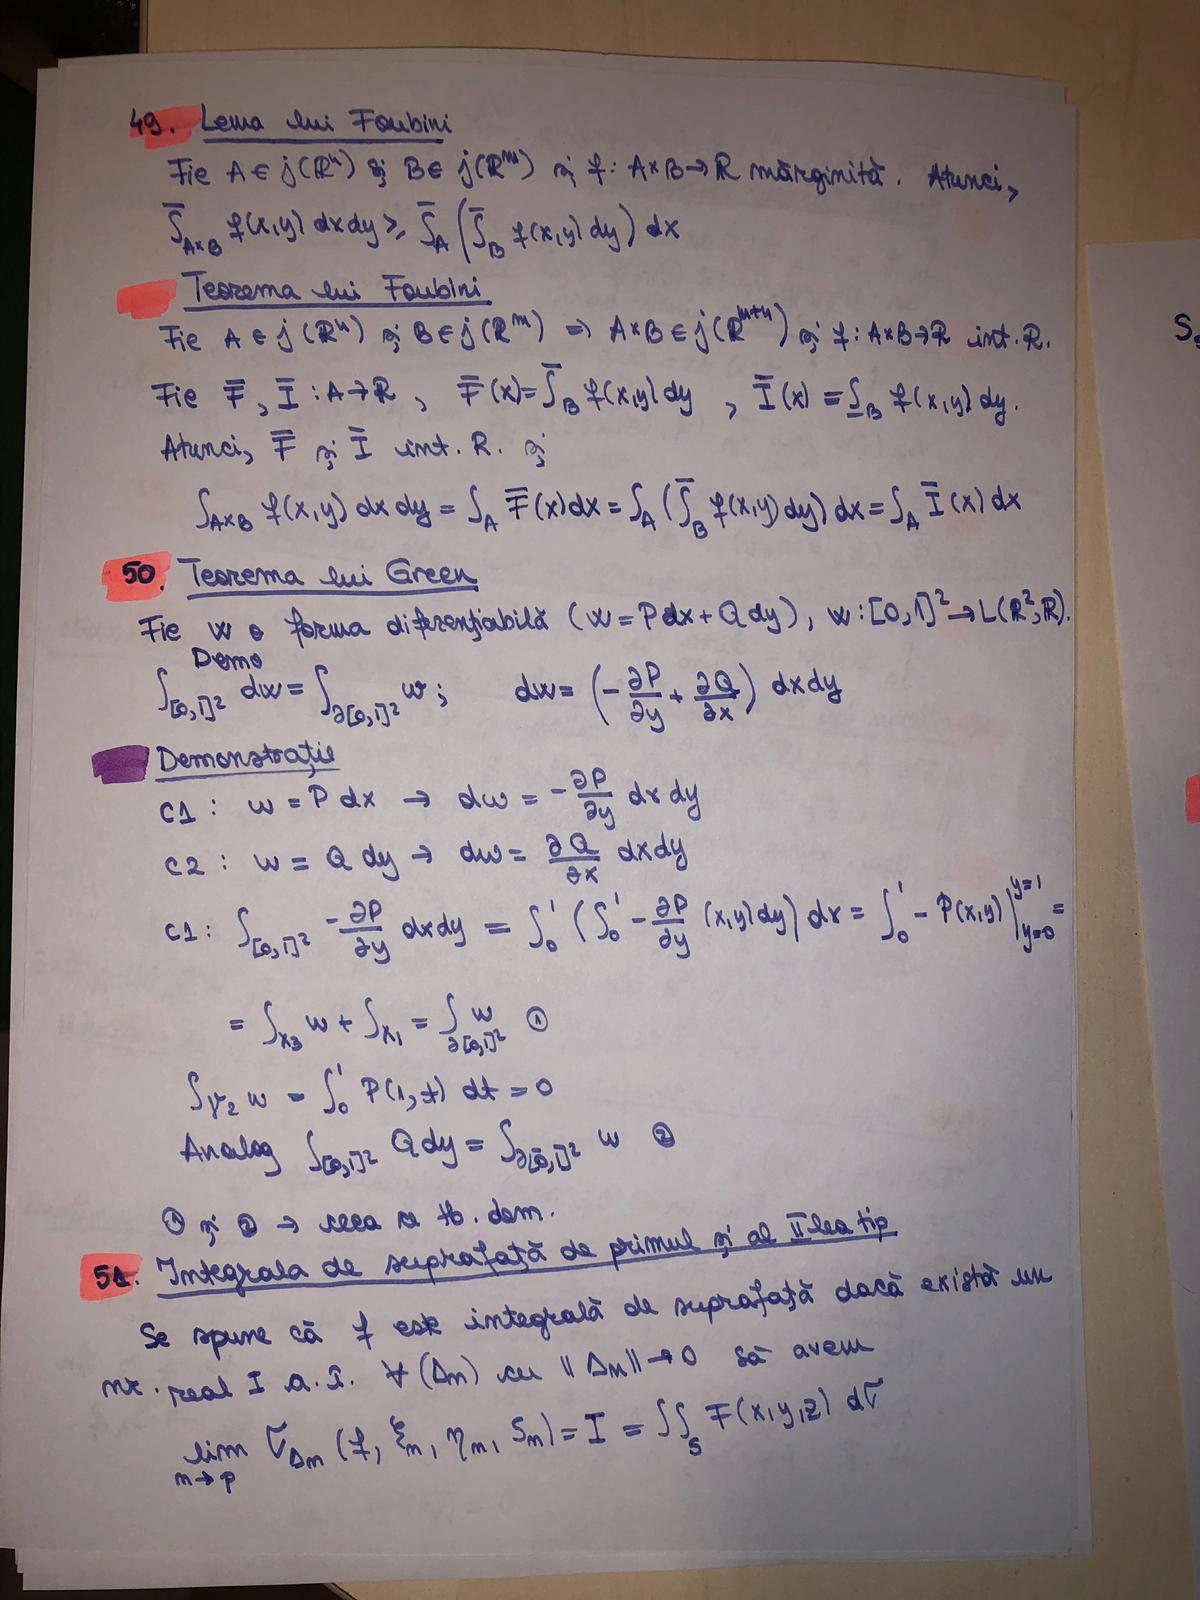 49. Lema lui Foubini
Fie A ∈ j(ℝⁿ) și B ∈ j(ℝᵐ) și f: A×B→ℝ mărginită. Atunci,
∫̄_{A×B} f(x,y) dxdy ≥ ∫̄_A (∫̄_B f(x,y) dy) dx
Teorema lui Foubini
Fie A ∈ j(ℝⁿ) și B ∈ j(ℝᵐ) ⇒ A×B ∈ j(ℝᵐ⁺ⁿ) și f: A×B→ℝ int. R.
Fie F̄, Ī : A→ℝ, F̄(x)=∫̄_B f(x,y) dy, Ī(x) = ∫̲_B f(x,y) dy.
Atunci, F̄ și Ī int. R. și
∫_{A×B} f(x,y) dx dy = ∫_A F̄(x)dx = ∫_A (∫̄_B f(x,y) dy) dx = ∫_A Ī(x) dx
50. Teorema lui Green
Fie w o forma diferențiabilă (w = Pdx + Q dy), w : [0,1]² → L(ℝ²,ℝ).
Demo
∫_{[0,1]²} dw = ∫_{∂[0,1]²} w; dw = (-∂P/∂y + ∂Q/∂x) dxdy
Demonstrație
C1: w = P dx → dw = -∂P/∂y dx dy
C2: w = Q dy → dw = ∂Q/∂x dxdy
C1: ∫_{[0,1]²} -∂P/∂y dxdy = ∫₀¹ (∫₀¹ -∂P/∂y (x,y)dy) dx = ∫₀¹ - P(x,y) |_{y=0}^{y=1} =
= ∫_{x₃} w + ∫_{x₁} = ∫_{∂[0,1]²} w ①
∫_{γ₂} w = ∫₀¹ P(1,t) dt = 0
Analog ∫_{[0,1]²} Q dy = ∫_{∂[0,1]²} w ②
① și ② → ceea ce tb. dem.
51. Integrala de suprafață de primul și al II lea tip
Se spune că f este integrală de suprafață dacă există un
nr. real I a.î. ∀(Δm) cu ||Δm|| → 0 să avem
lim_{m→p} σ_{Δm} (f, ξm, ηm, ζm) = I = ∫∫_S F(x,y,z) dσ